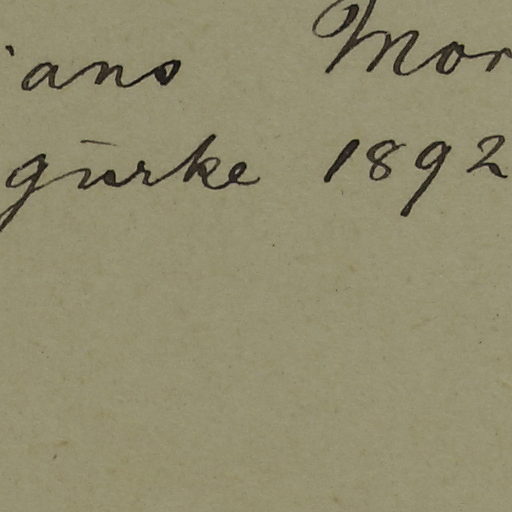 ians Mor
gürke 1892